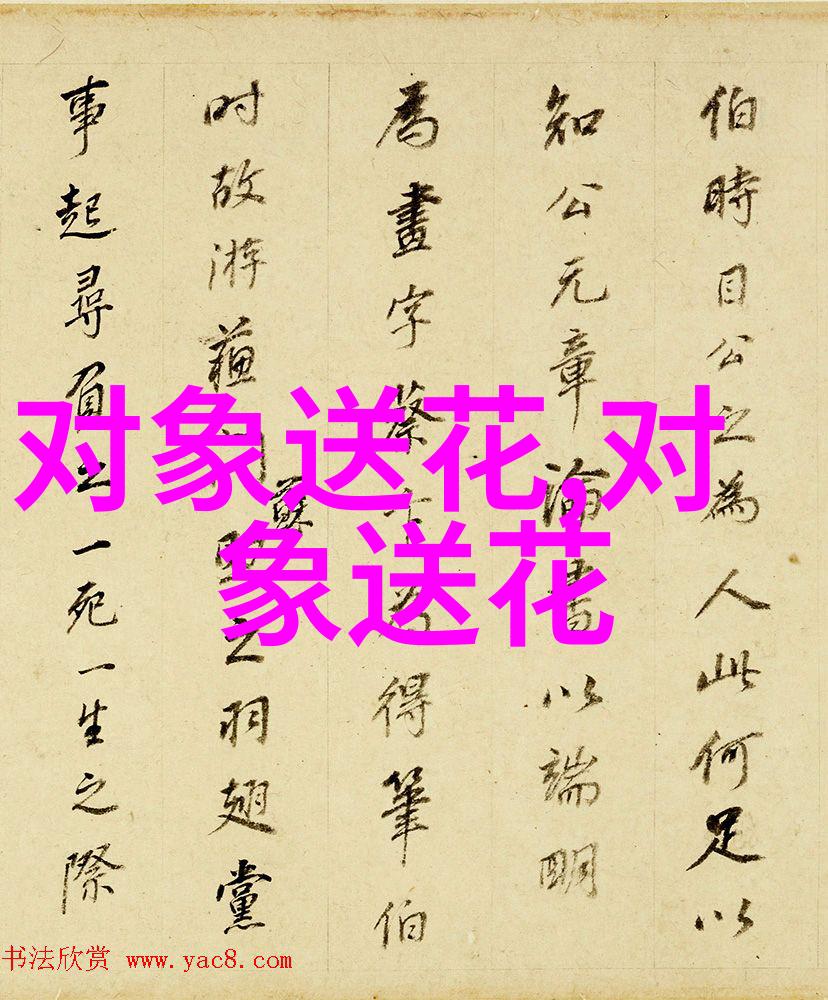 伯時目公之為人此何足以
知公元章論書以端明
為畫字蔡得筆伯
时故游蘓之羽翅黨
事起尋之一死一生之際
对象送花,对
象送花
书法欣赏 www.yac8.com